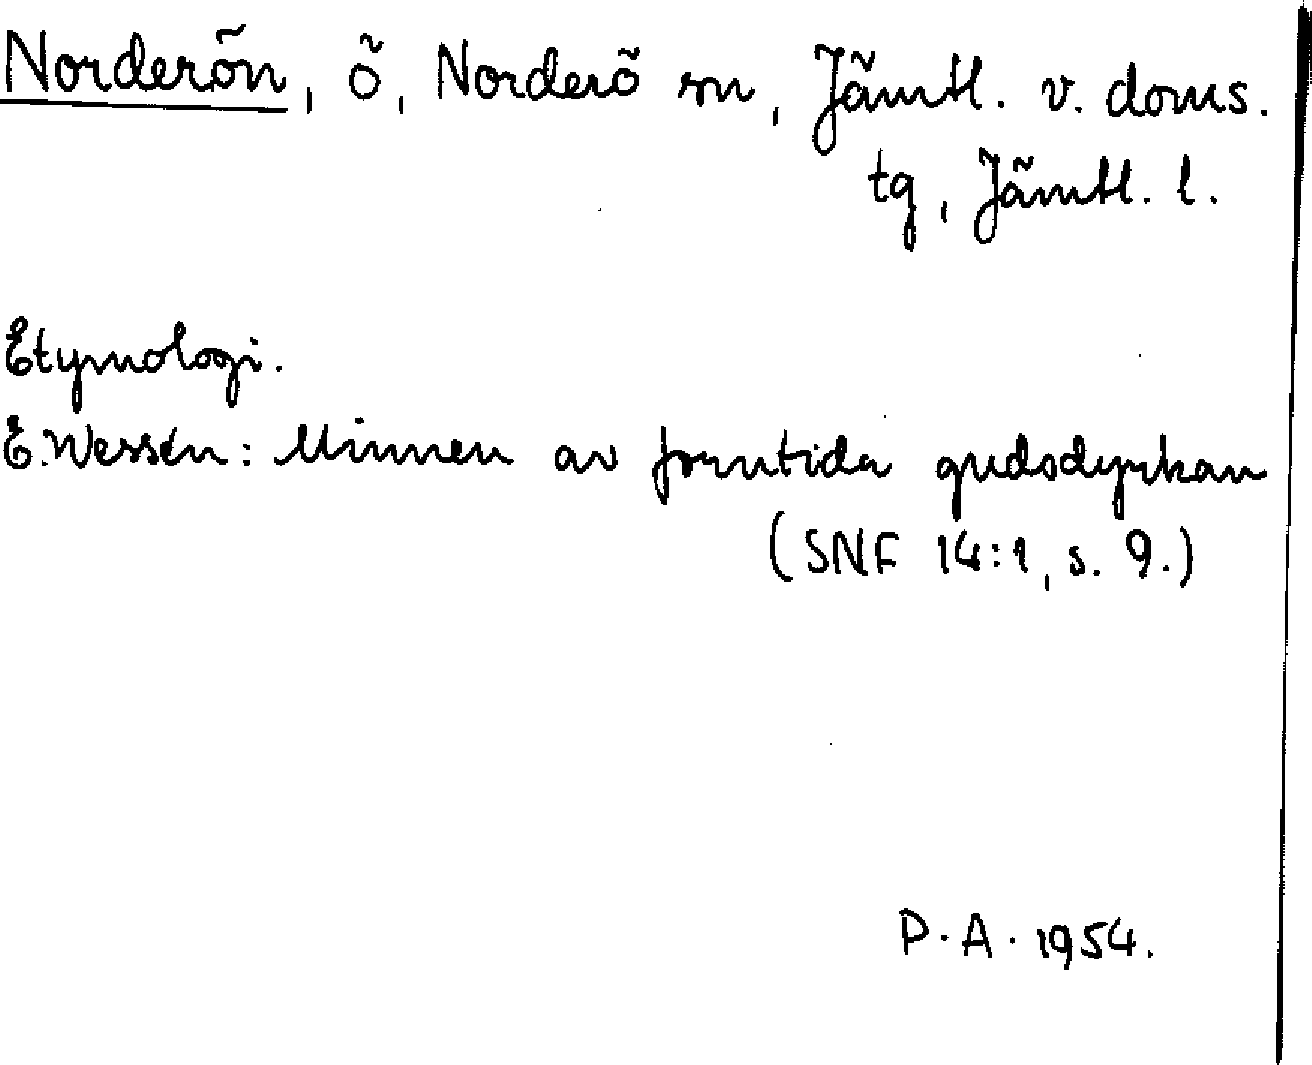 Norderön, ö, Norderö sn, Jämtl. v. doms.
tg, Jämtl. l.
Etymologi.
E. Wessén: Minnen av forntida gudsdyrkan
(SNF 14:1, s. 9.)
P. A. 1954.